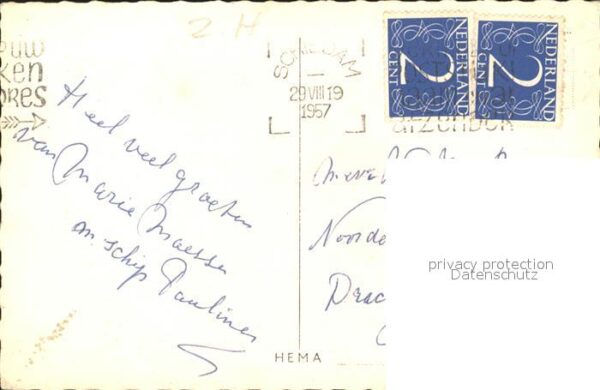 2 H
euw
ken
pres
SCHIEDAM
29 VIII 19
1957
NEDERLAND
2
CENT
NEDERLAND
2
CENT
afzender
Heel veel groeten
van Marie Maessen
m. schip Paulina
Mevr
Noorde
Drac
privacy protection
Datenschutz
HEMA